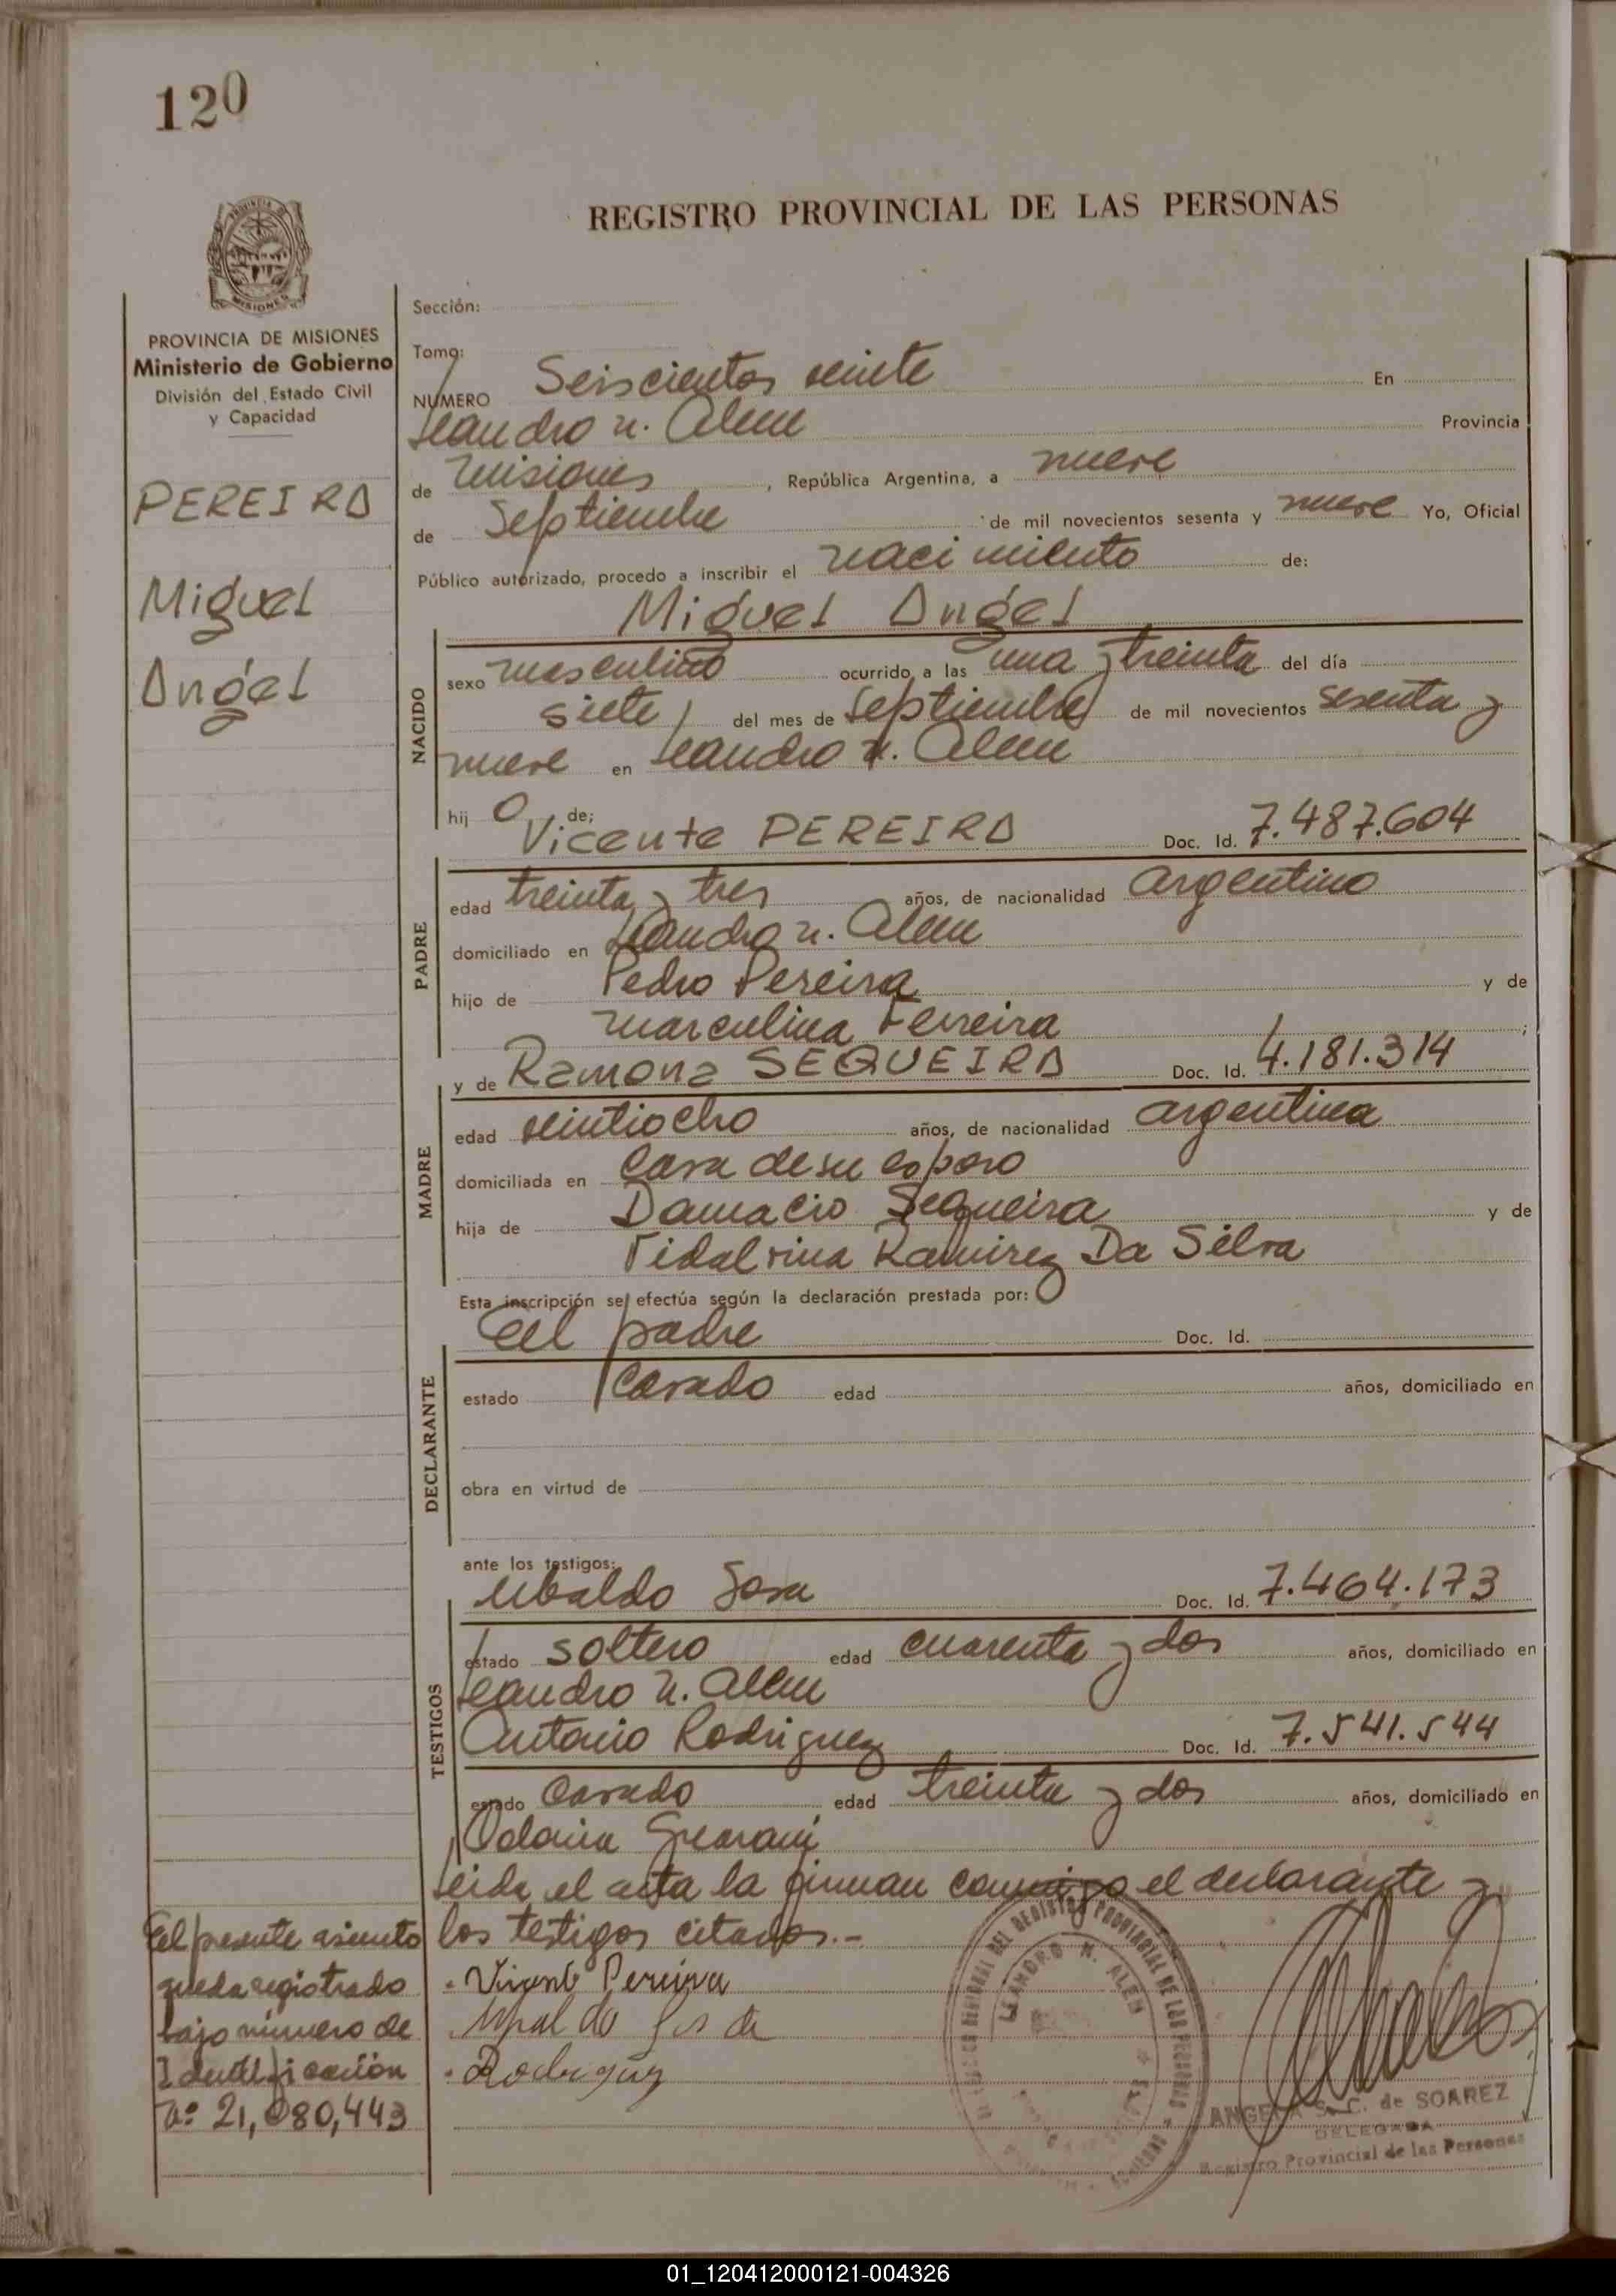 120
PROVINCIA DE MISIONES
Ministerio de Gobierno
División del Estado Civil
y Capacidad
PEREIRA
Miguel
Angel
REGISTRO PROVINCIAL DE LAS PERSONAS
Sección:
Tomo:
NUMERO Seiscientos veinte En
Leandro N. Alem Provincia
de Misiones, República Argentina, a nueve
de Septiembre de mil novecientos sesenta y nueve Yo, Oficial
Público autorizado, procedo a inscribir el nacimiento de:
Miguel Angel
NACIDO
sexo masculino ocurrido a las una y treinta del día
siete del mes de Septiembre de mil novecientos sesenta y
nueve en Leandro N. Alem
hij o de:
Vicente PEREIRA Doc. Id. 7.487.604
PADRE
edad treinta y tres años, de nacionalidad argentino
domiciliado en Leandro N. Alem
hijo de Pedro Pereira y de
Marculina Ferreira;
y de Ramona SEQUEIRA Doc. Id. 4.181.314
MADRE
edad veintiocho años, de nacionalidad argentina
domiciliada en Casa de su esposo
hija de Damacio Sequeira y de
Vidalvina Ramirez Da Silva
Esta inscripción se efectúa según la declaración prestada por:
El padre Doc. Id.
DECLARANTE
estado Casado edad años, domiciliado en
obra en virtud de
ante los testigos:
Ubaldo Sosa Doc. Id. 7.464.173
TESTIGOS
estado soltero edad cuarenta y dos años, domiciliado en
Leandro N. Alem
Antonio Rodriguez Doc. Id. 7.541.544
estado Casado edad treinta y dos años, domiciliado en
Colonia Guarani
Leida el acta la firman conmigo el declarante y
los testigos citados.-
Vicente Pereira
Rodriguez
El presente asiento
queda registrado
bajo número de
Identificación
Nº 21,080,443
DEL REGISTRO PROVINCIAL DE LAS PERSONAS
LEANDRO N. ALEM
MISIONES
ANGELA S. C. de SOAREZ
DELEGADA
Registro Provincial de las Personas
01_120412000121-004326